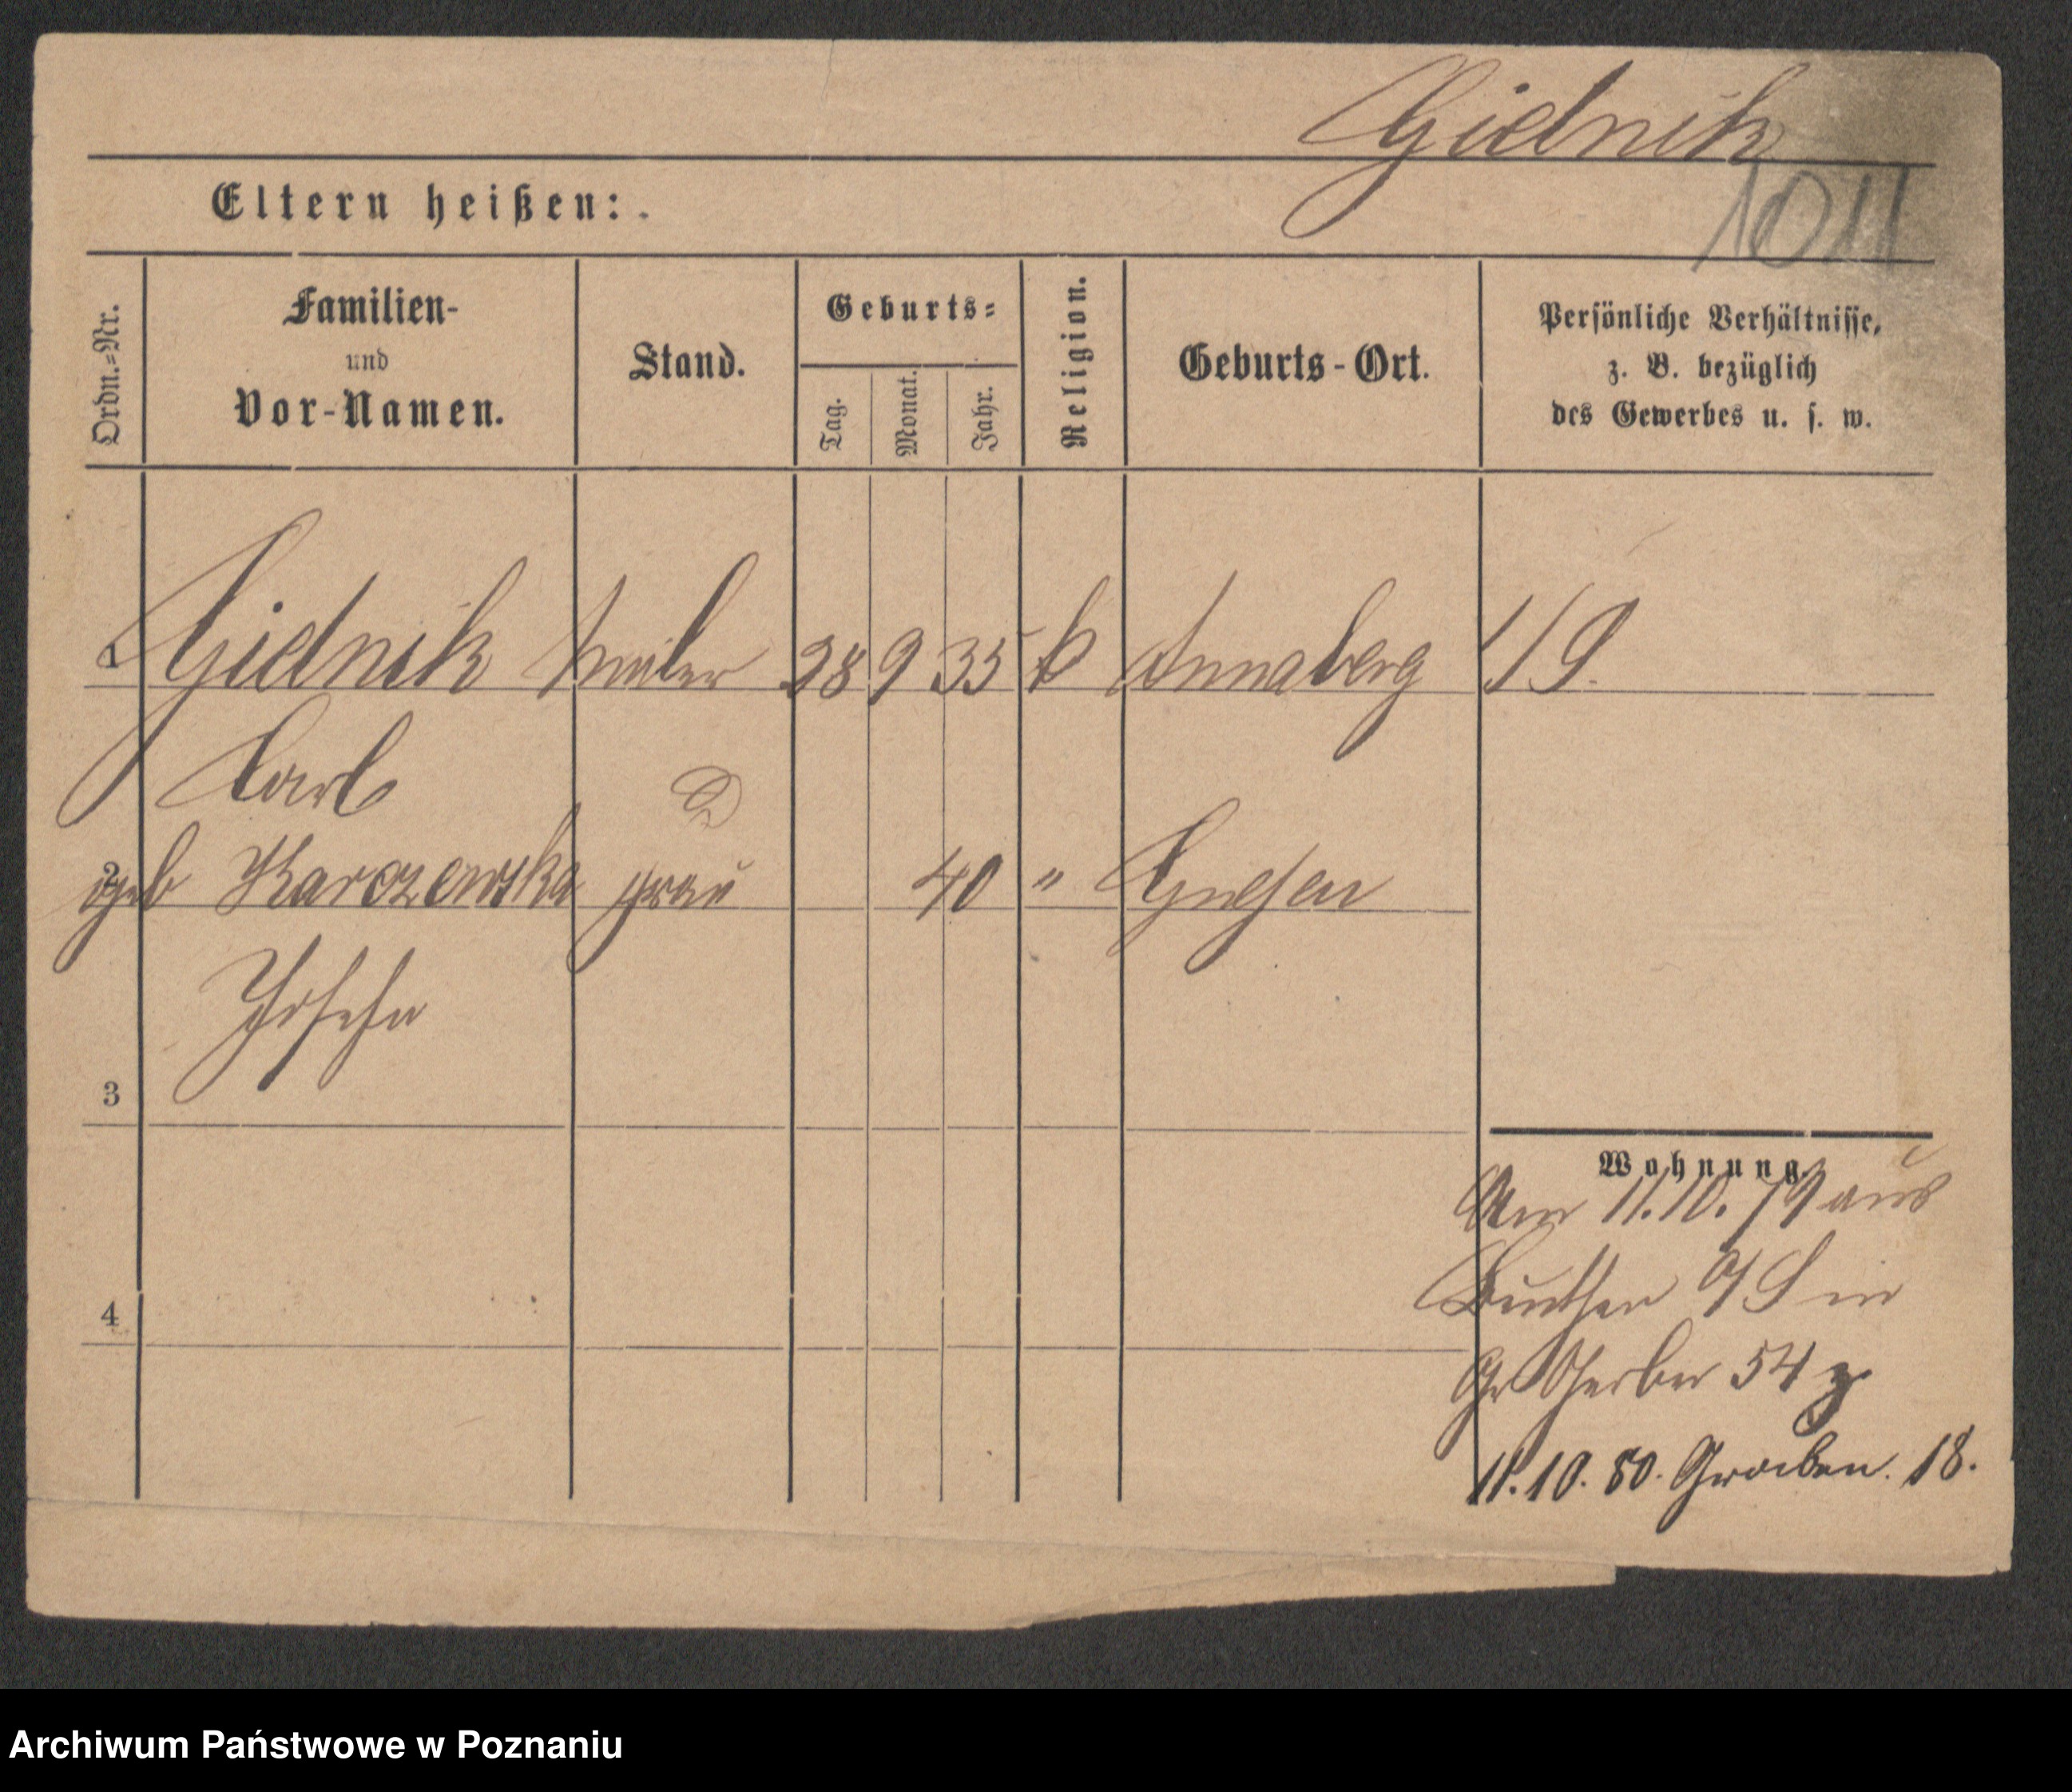 Gielnik
1011
Eltern heißen:
Ordn.-Nr.
Familien-
und
Vor-Namen.
Stand.
Geburts-
Tag.
Monat.
Jahr.
Religion.
Geburts-Ort.
Persönliche Verhältnisse,
z. B. bezüglich
des Gewerbes u. s. w.
1 Gielnik Maler 28 9 35 k Annaberg
Carl
2 geb Karczewska Frau 40 " Gnesen
Josefa
3
Wohnung.
Am 11.10.79 aus
Beuthen O/S in
Gr Gerber 54 z.
4
11.10.80. Graben. 18.
Archiwum Państwowe w Poznaniu